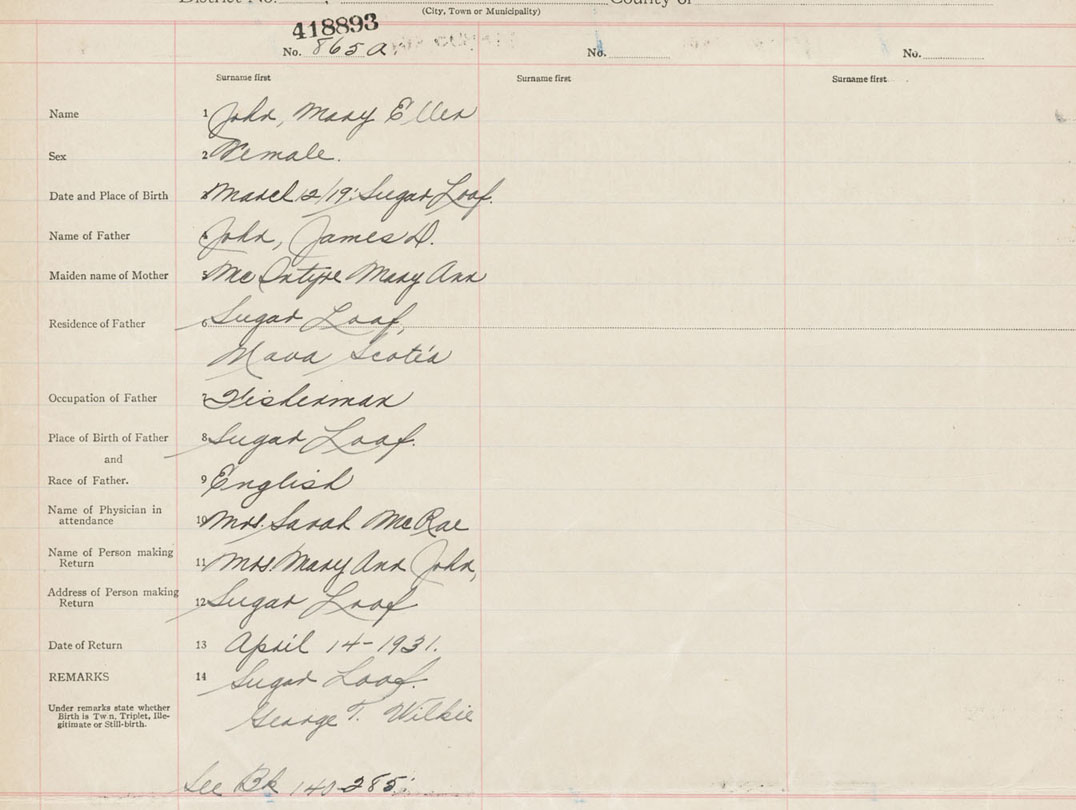 District No. County of
(City, Town or Municipality)
418893
No. 865 a
No.
No.
Surname first
Surname first
Surname first
Name 1 John, Mary Ellen
Sex 2 Female.
Date and Place of Birth March 12/19. Sugar Loaf.
Name of Father 4 John, James D.
Maiden name of Mother 5 McIntyre Mary Ann
Residence of Father 6 Sugar Loaf,
Nova Scotia
Occupation of Father 7 Fisherman
Place of Birth of Father 8 Sugar Loaf.
and
Race of Father. 9 English
Name of Physician in
attendance 10 Mrs. Sarah McRae
Name of Person making
Return 11 Mrs Mary Ann John,
Address of Person making
Return 12 Sugar Loaf
Date of Return 13 April 14-1931.
REMARKS 14 Sugar Loaf.
Under remarks state whether
Birth is Twin, Triplet, Ille-
gitimate or Still-birth.
George T. Wilkie
See Bk 140-285